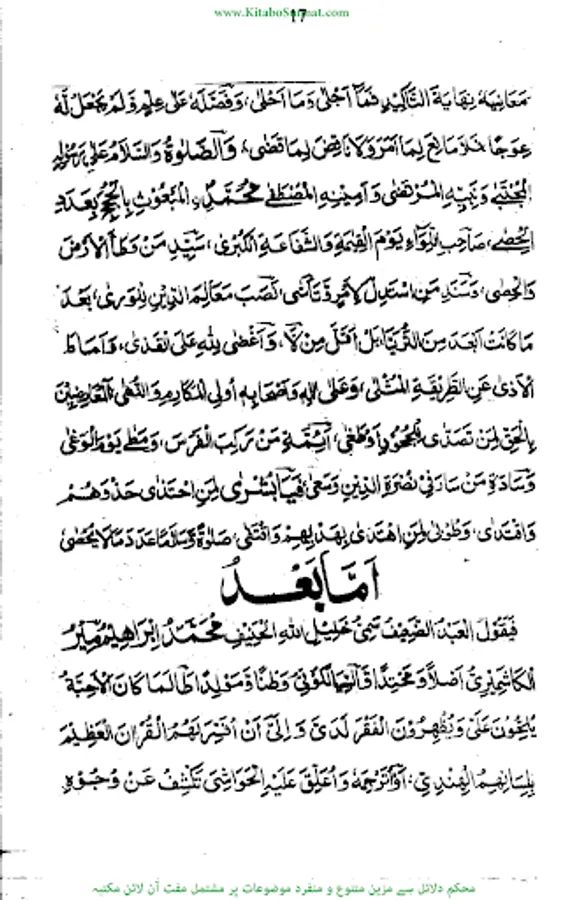 www.KitaboSunnat.com
17
معانيه نهاية التاكيد فما أجلى وما أحلى، وفصله على علم ولم يجعل له
عوجا فلا مانع لما أمر ولا ناقض لما قضى، والصلوة والسلام على رسوله
المجتبى ونبيه المرتضى وامينه المصطفى محمد المبعوث بالحجج بعدد
الحصى، صاحب اللواء يوم القيمة والشفاعة الكبرى، سيد من وطأ الأرض
والحصى، وسند من استدل لأمر وتأسى، نصب معالم الدين للورى، بعد
ما كانت أبعد من الثريا بل أفل من لا، وأغضى لله على القذى، وأماط
الأذى عن الطريقة المثلى، وعلى اله وأصحابه أولي المكارم والنهى، المعارضين
بالحق لمن تصدى للجحود أو طغى، أئمة من ركب الفرس، ومطى يوم الوغى
وسادة من سار في نصرة الدين وسعى، فيا بشرى لمن احتذى حذوهم
واقتدى، وطوبى لمن اهتدى بهديهم واقتفى، صلوة وسلاما عدد ما لا يحصى
أما بعد
فيقول العبد الضعيف سمي خليل الله الحنيف محمد إبراهيم مير
الكاشميري أصلا ومحتدا والسيالكوتي وطنا ومولدا طالما كان الأحبة
يلحون علي ويظهرون الفقر لدي وإلي أن أفسر لهم القران العظيم
بلسانهم الهندي، أو أترجمه وأعلق عليه الحواشي تكشف عن وجوه
محکم دلائل سے مزین متنوع و منفرد موضوعات پر مشتمل مفت آن لائن مکتبہ